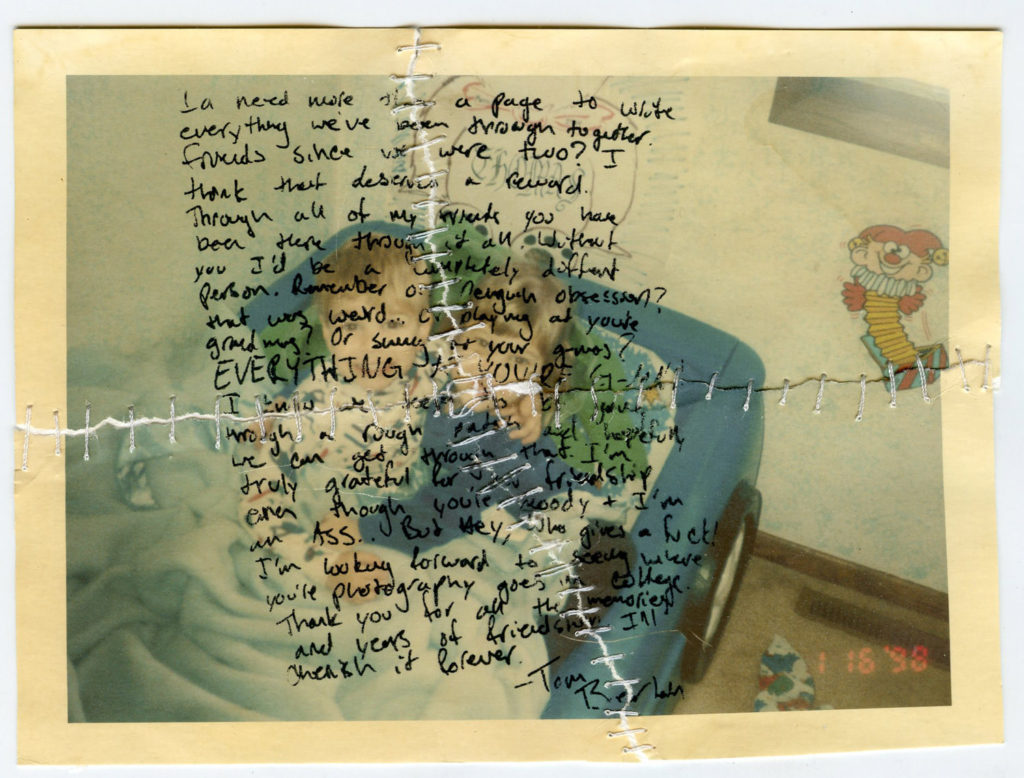 I'd need more than a page to write
everything we've been through together.
friends since we were two? I
think that deserves a reward.
Through all of my friends you have
been there through it all. Without
you I'd be a completely different
person. Remember our Penguin obsession?
that was weird... Or playing at you're
grandmas? Or at your
EVERYTHING at YOURE
I know we to be
through a rough patch and hopefully
we can get through that. I'm
truly grateful for friendship
even though you're moody + I'm
an ASS... But Hey, who gives a fuck!
I'm looking forward to seeing where
you're photography goes in college.
Thank you for all the memories
and years of friendship. I'll
cherish it forever.
-Tom
1 16 '98